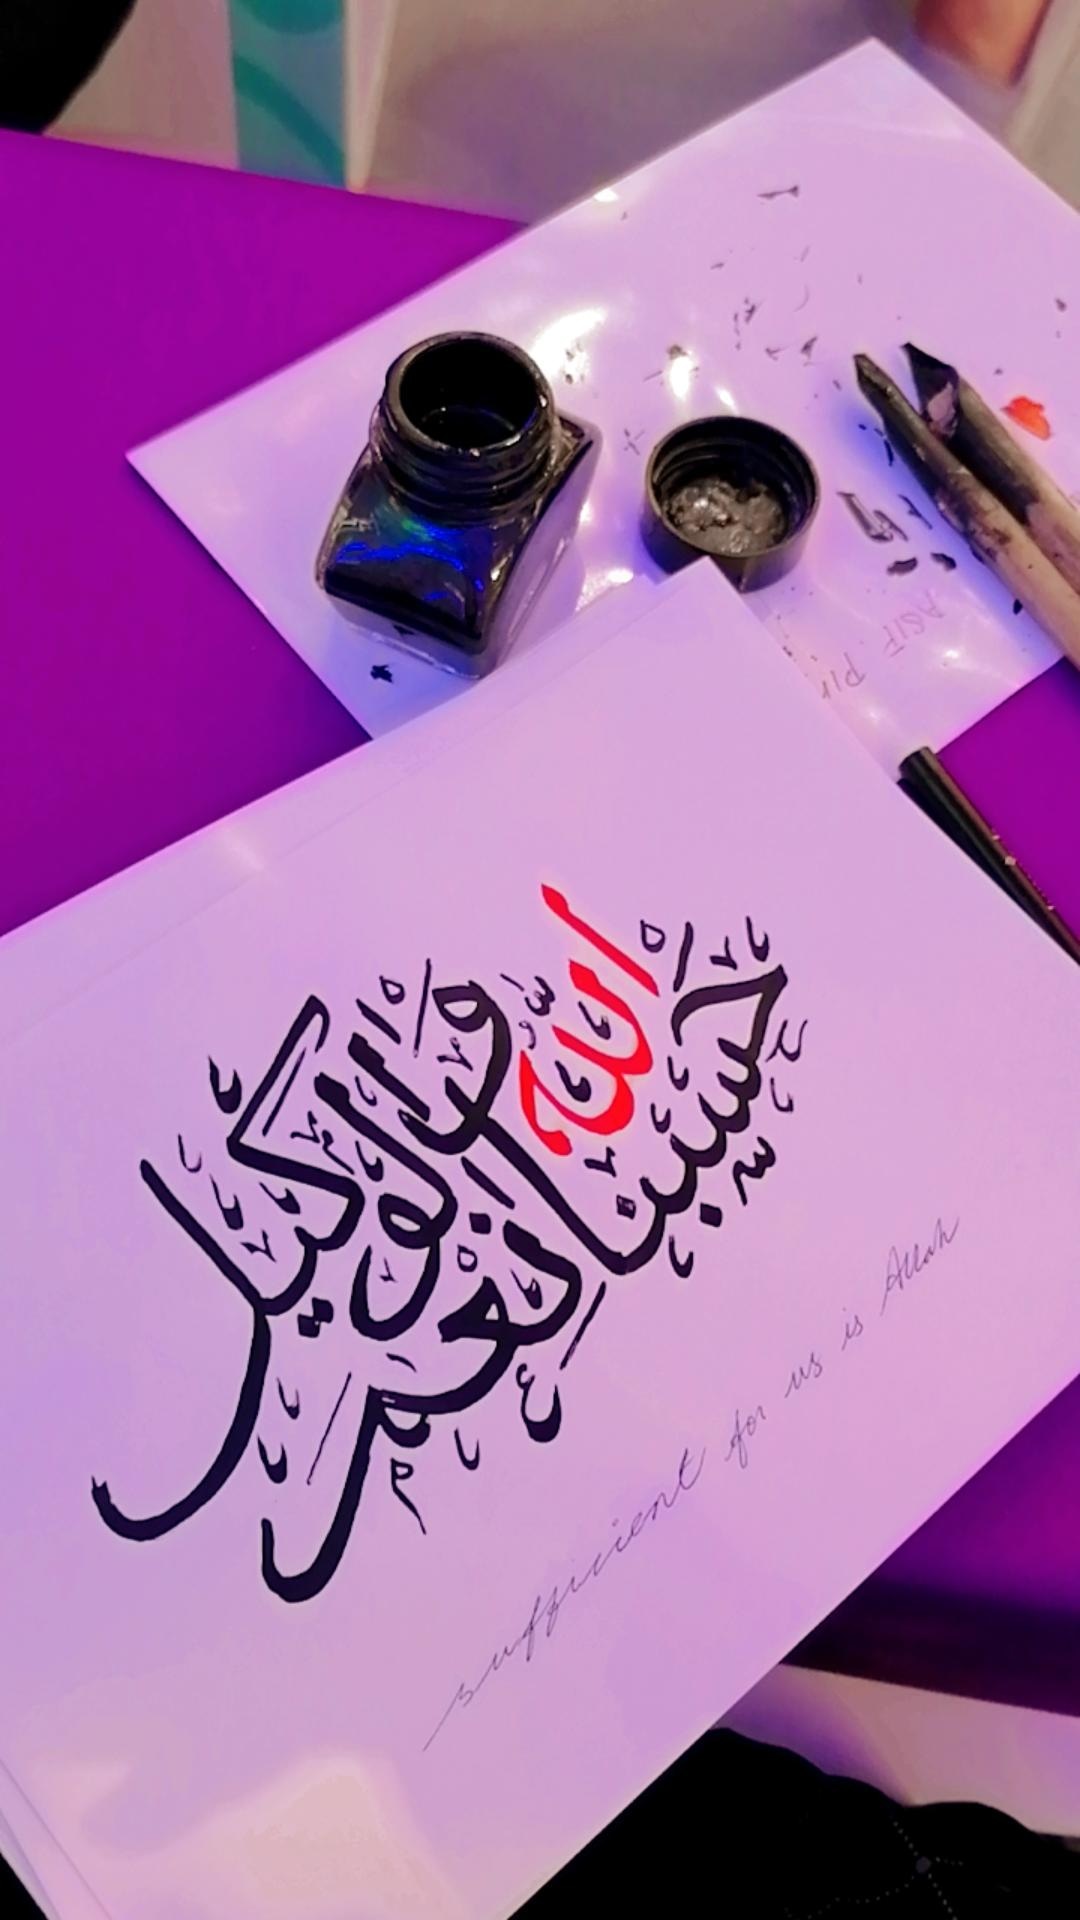 حسبنا الله ونعم الوكيل
sufficient for us is Allah
ASIF